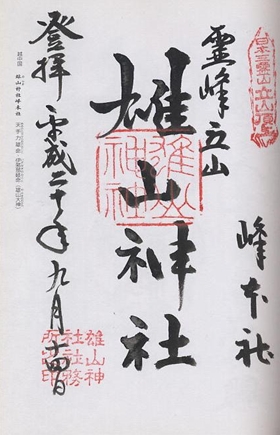 日本三霊山立山頂
霊峰立山
峰本社
雄山神社
雄山神社
登拝 平成二十年九月十四日
雄山神社社務所之印